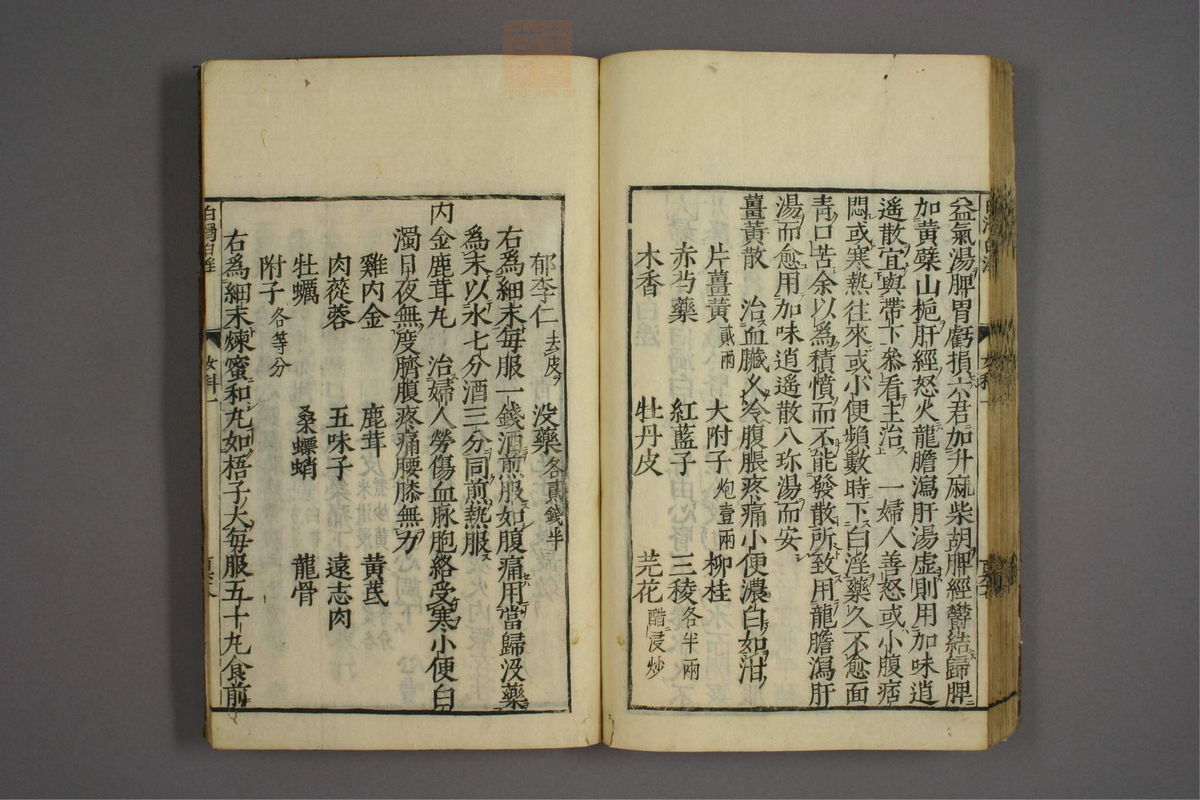 益氣湯脾胃虧損六君加升麻柴胡脾經鬱結歸脾
加黃蘗山梔肝經怒火龍膽瀉肝湯虛則用加味逍
遙散宜與帶下參看主治 一婦人善怒或小腹痞
悶或寒熱往來或小便頻數時下白淫藥久不愈面
青口苦余以為積憤而不能發散所致用龍膽瀉肝
湯而愈用加味逍遙散八珎湯而安
薑黃散 治血臟久冷腹脹疼痛小便濃白如泔
片薑黃貳兩 大附子炮壹兩 柳桂
赤芍藥 紅藍子 三稜各半兩
木香 牡丹皮 芫花醋浸炒
郁李仁去皮 没藥各貳錢半
右為細末每服一錢酒煎服如腹痛用當歸没藥
為末以水七分酒三分同煎熱服
内金鹿茸丸 治婦人勞傷血脉胞絡受寒小便白
濁日夜無度臍腹疼痛腰膝無力
雞内金 鹿茸 黃芪
肉蓯蓉 五味子 遠志肉
牡蠣 桑螵蛸 龍骨
附子各等分
右為細末煉蜜和丸如梧子大每服五十丸食前
白濁白淫
女科一